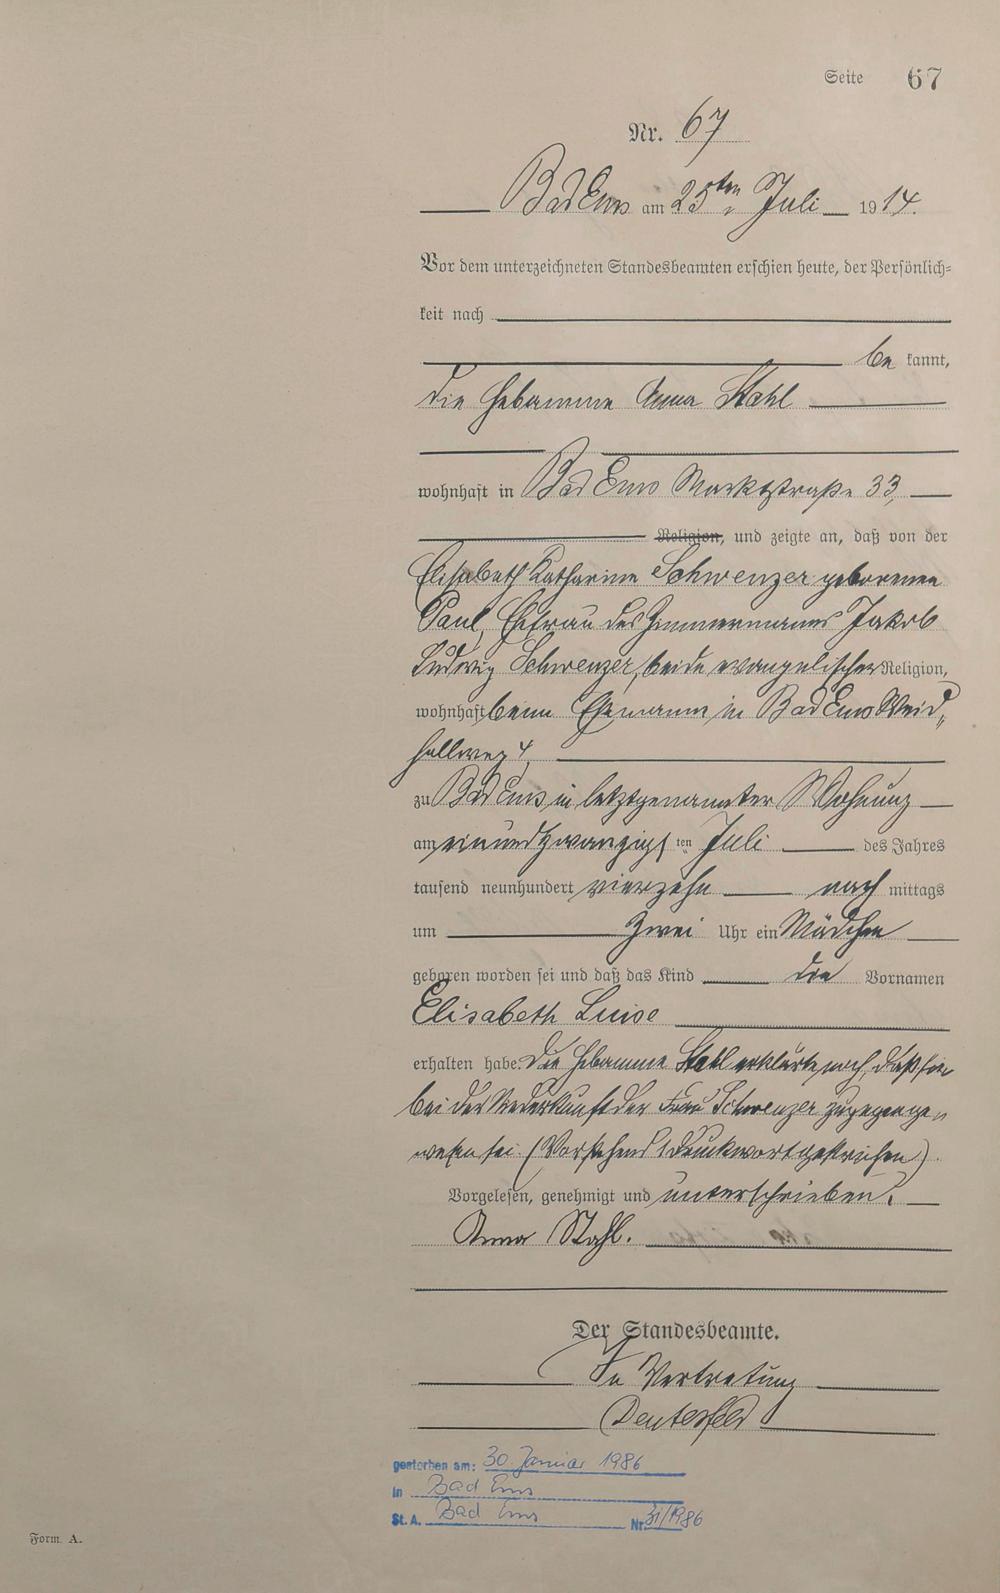 Seite 67
Nr. 67
Bad Ems am 25ten Juli 1914.
Vor dem unterzeichneten Standesbeamten erschien heute, der Persönlich-
keit nach
be kannt,
die Hebamme Anna Stahl
wohnhaft in Bad Ems Marktstraße 33,
Religion, und zeigte an, daß von der
Elisabeth Katharine Schwenzer geborenen
Paul, Ehefrau des Zimmermanns Jakob
Ludwig Schwenzer, beide evangelischer Religion,
wohnhaft beim Ehemann in Bad Ems
zu Bad Ems in letztgenannter Wohnung
am einundzwanzigsten Juli des Jahres
tausend neunhundert vierzehn nach mittags
um zwei Uhr ein Mädchen
geboren worden sei und daß das Kind die Vornamen
Elisabeth Luise
erhalten habe. Die Hebamme Stahl erklärte noch, daß sie
bei der Niederkunft der Frau Schwenzer zugegen ge-
wesen sei. (Vorstehend 1 Druckwort gestrichen)
Vorgelesen, genehmigt und unterschrieben.
Anna Stahl.
Der Standesbeamte.
In Vertretung
gestorben am: 30. Januar 1986
in Bad Ems
St. A. Bad Ems Nr. 31/1986
Form. A.